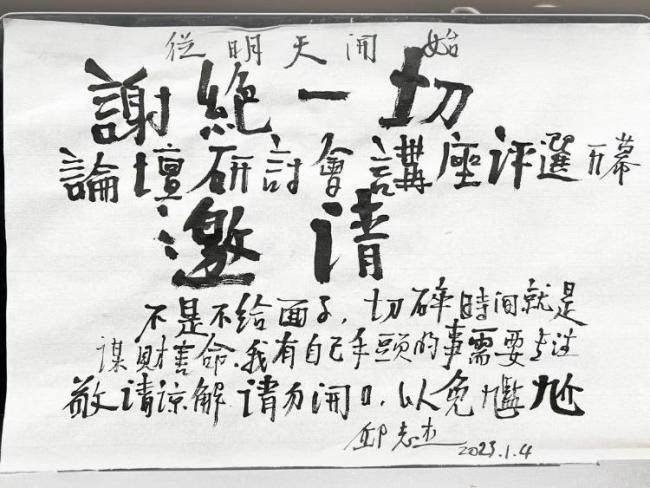 従明天開始
謝絶一切
論壇研討會講座评選開幕
邀请
不是不给面子，切碎時间就是
謀財害命.我有自己手頭的事需要专注
敬请諒解 请勿開口.以免尴尬
邱志杰 2023.1.4